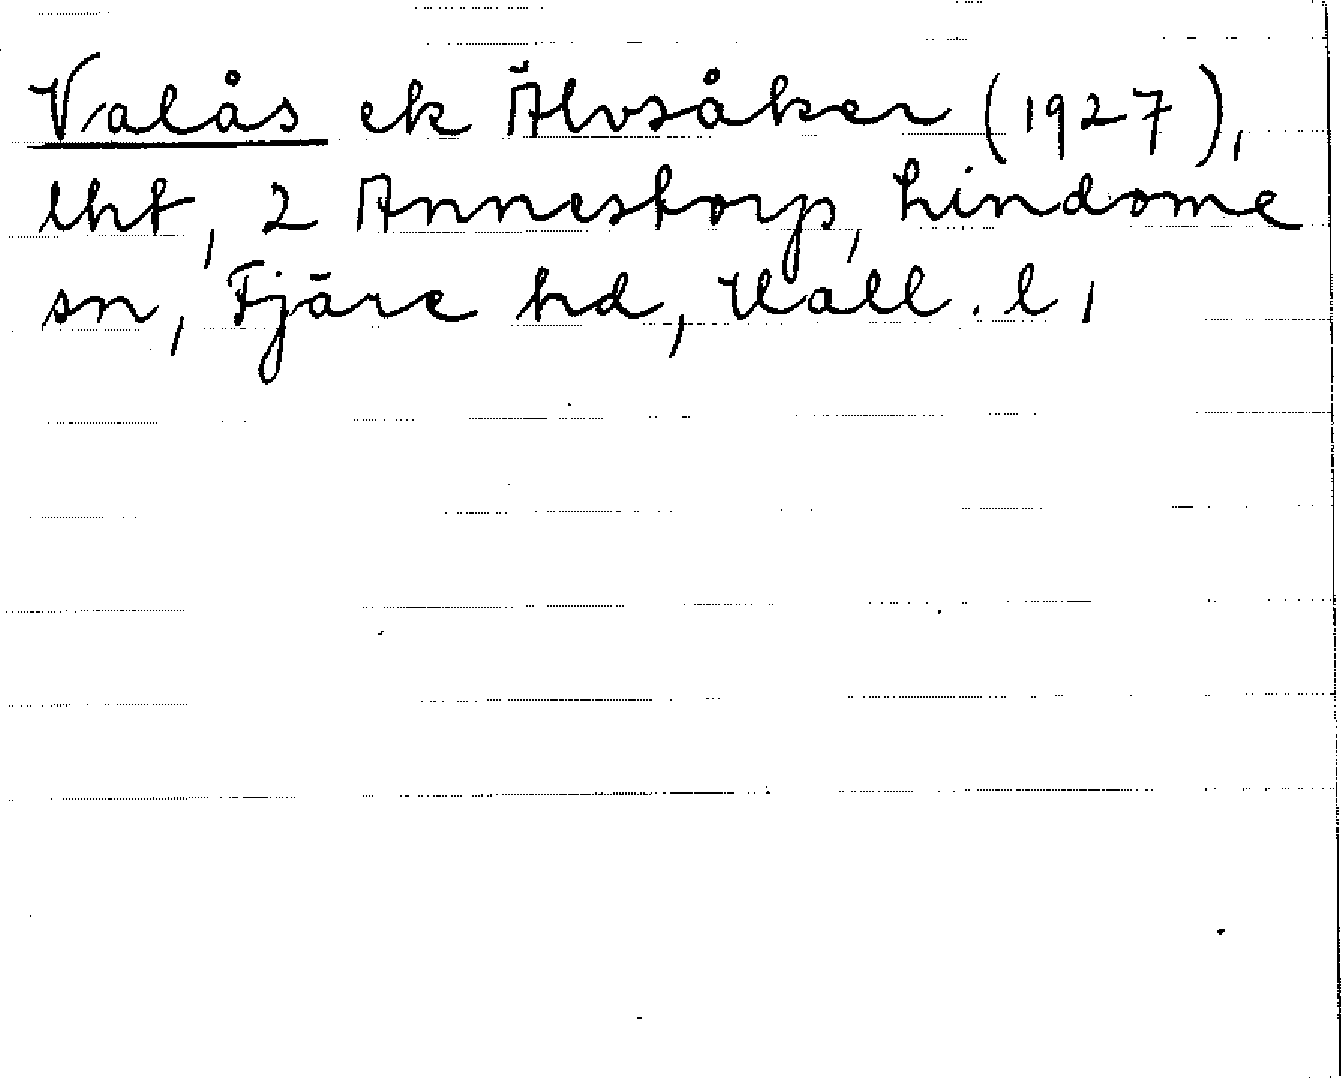 Valås ek Älvsåker (1927),
lht, 2 Annestorp, Lindome
sn, Fjäre hd, Hall. l,